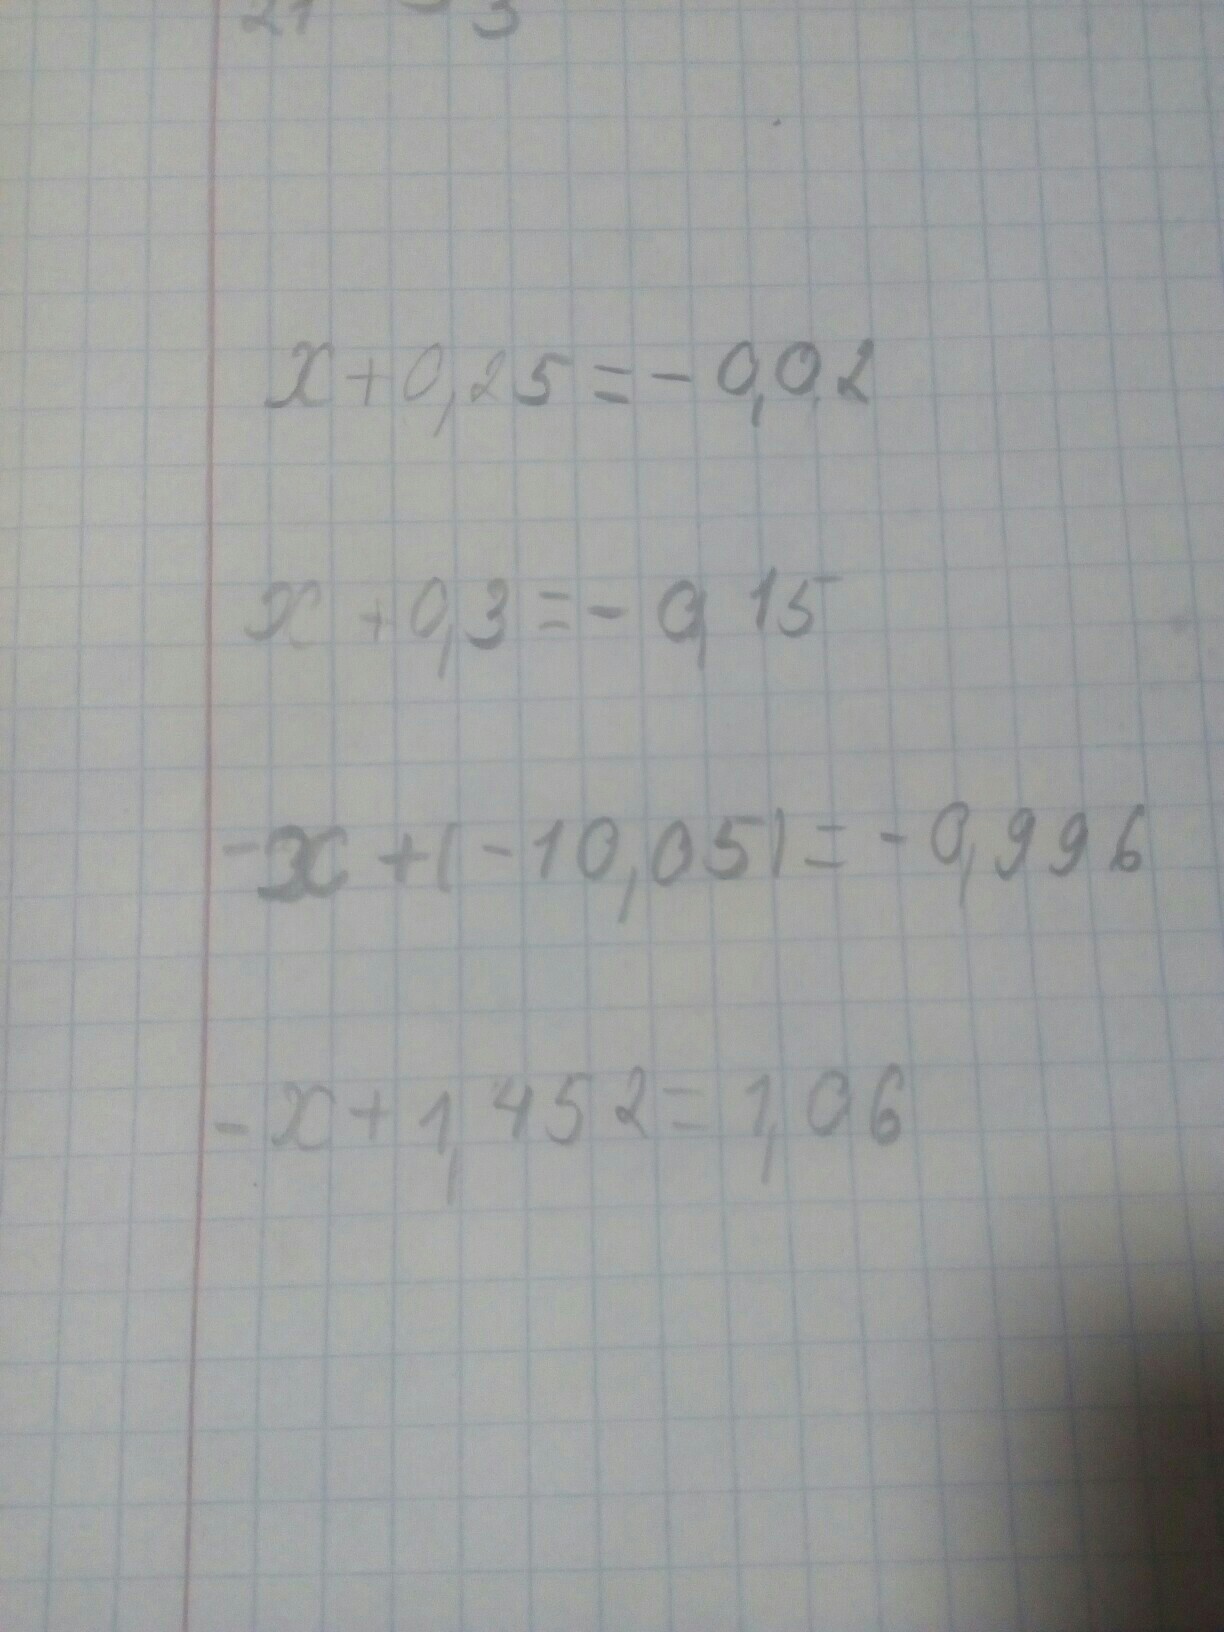 21 - 3
x + 0,25 = - 0,02
x + 0,3 = - 0,15
-x + (-10,05) = - 0,996
-x + 1,452 = 1,06